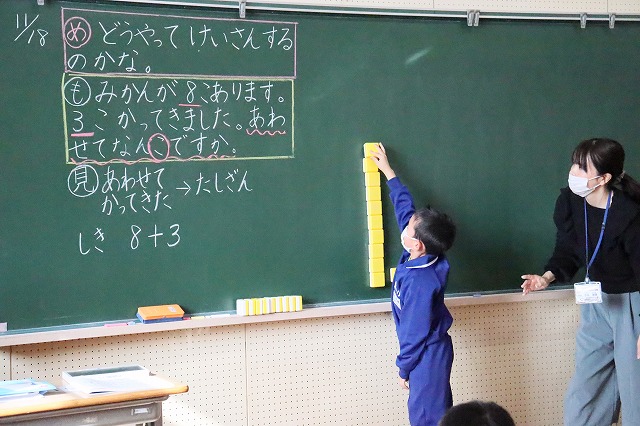 11/18
め どうやってけいさんする
のかな。
も みかんが8こあります。
3こかってきました。あわ
せてなんこですか。
見 あわせて
かってきた
→たしざん
しき 8+3